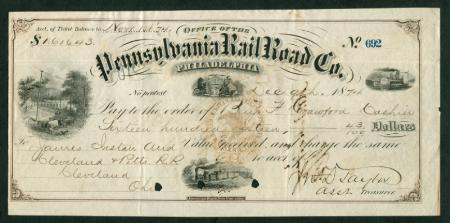 Acct. of Ticket Balance to Nov. 1st. 74.
OFFICE OF THE
$1616.43.
Pennsylvania Rail Road Co.
No 692
PHILADELPHIA
No protest Dec 9th 1874
Pay to the order of Crawford Cashier
Sixteen hundred sixteen 43/100 Dollars
To Value received, and charge the same
James Aud
Cleveland & Pitts. R.R. to acct of
Cleveland Taylor
Ohio Asst Treasurer